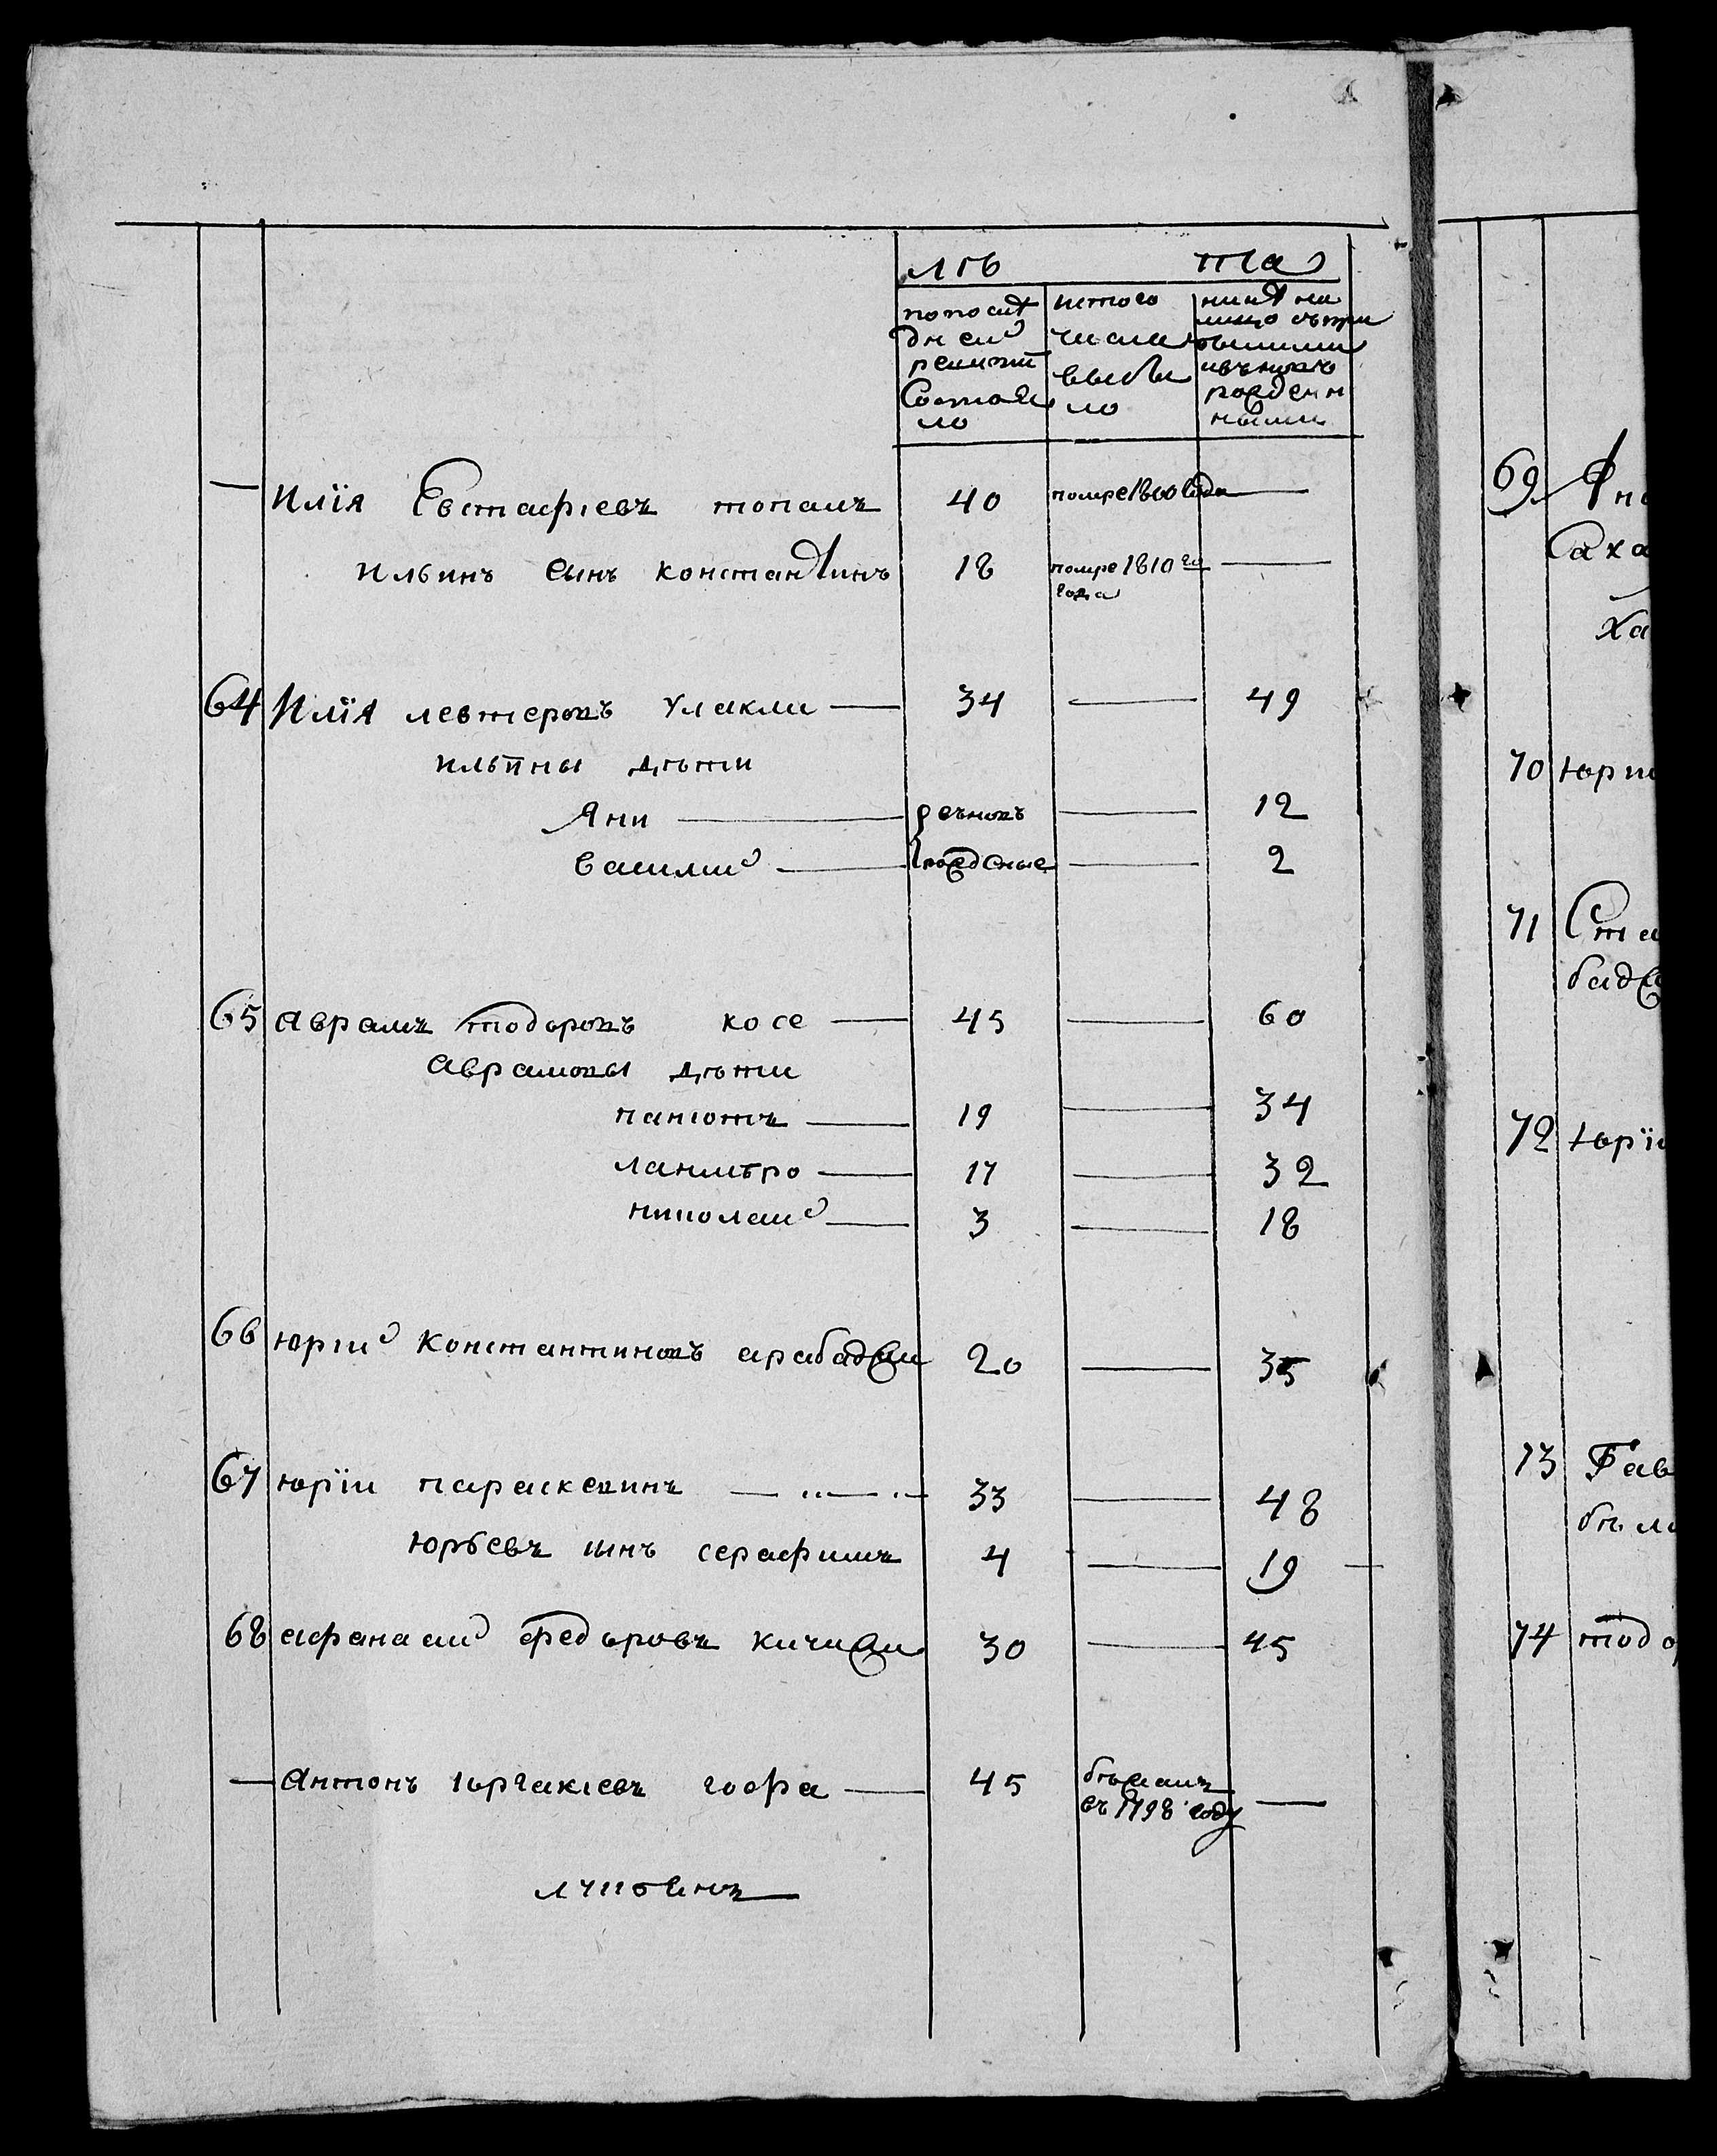 лѣ та
по посл\u0463
дней
ревизіи
Состоя
ло
ис того
числа
выбы
ло
нынѣ на
лицо съ при
былыми
и вь новь
рожденн
ными
— Илїя Евстафіевъ топалъ 40 помре 1800 года —
Ильинъ сынъ константинъ 18 помре 1810го —
года
64 Илїя левтеровъ улакли — 34 — 49
ильины дѣти
Яни — въновь — 12
василий — рожденые — 2
65 аврамъ тодоровъ косе — 45 — 60
аврамовы дѣти
паніотъ — 19 — 34
ламбро — 17 — 32
николай — 3 — 18
66 юрий константиновъ арабаджи 20 — 35
67 юрїи параскевинъ — 33 — 48
юрьевъ сынъ серафимъ 4 — 19
68 афанасий федоровъ кичиджи 30 — 45
— антонъ юргакіевъ гофра — 45 бѣжалъ
въ 1798 году —
69
Саха
Ха
70 юри
71 Ста
бадж
72 юрїи
73 Гав
74 тодо